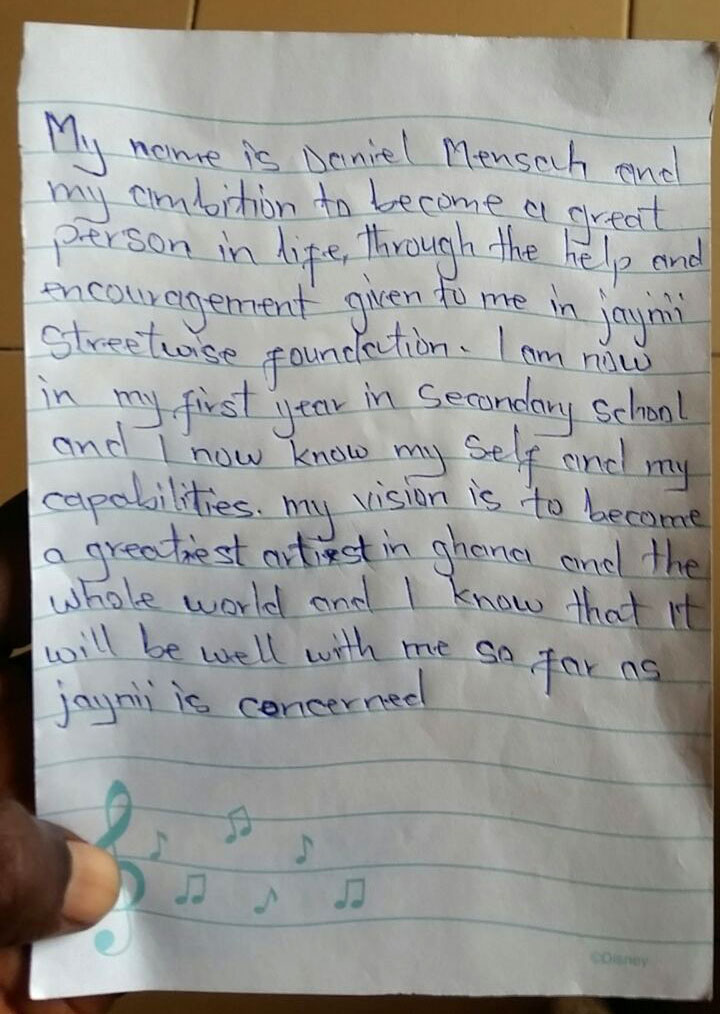 My name is Daniel Mensah and
my ambition to become a great
person in life, through the help and
encouragement given to me in jaynii
Streetwise foundation. I am now
in my first year in Secondary School
and I now know my Self and my
capabilities. my vision is to become
a greatiest artiest in ghana and the
whole world and I know that it
will be well with me so far as
jaynii is concerned
©Disney